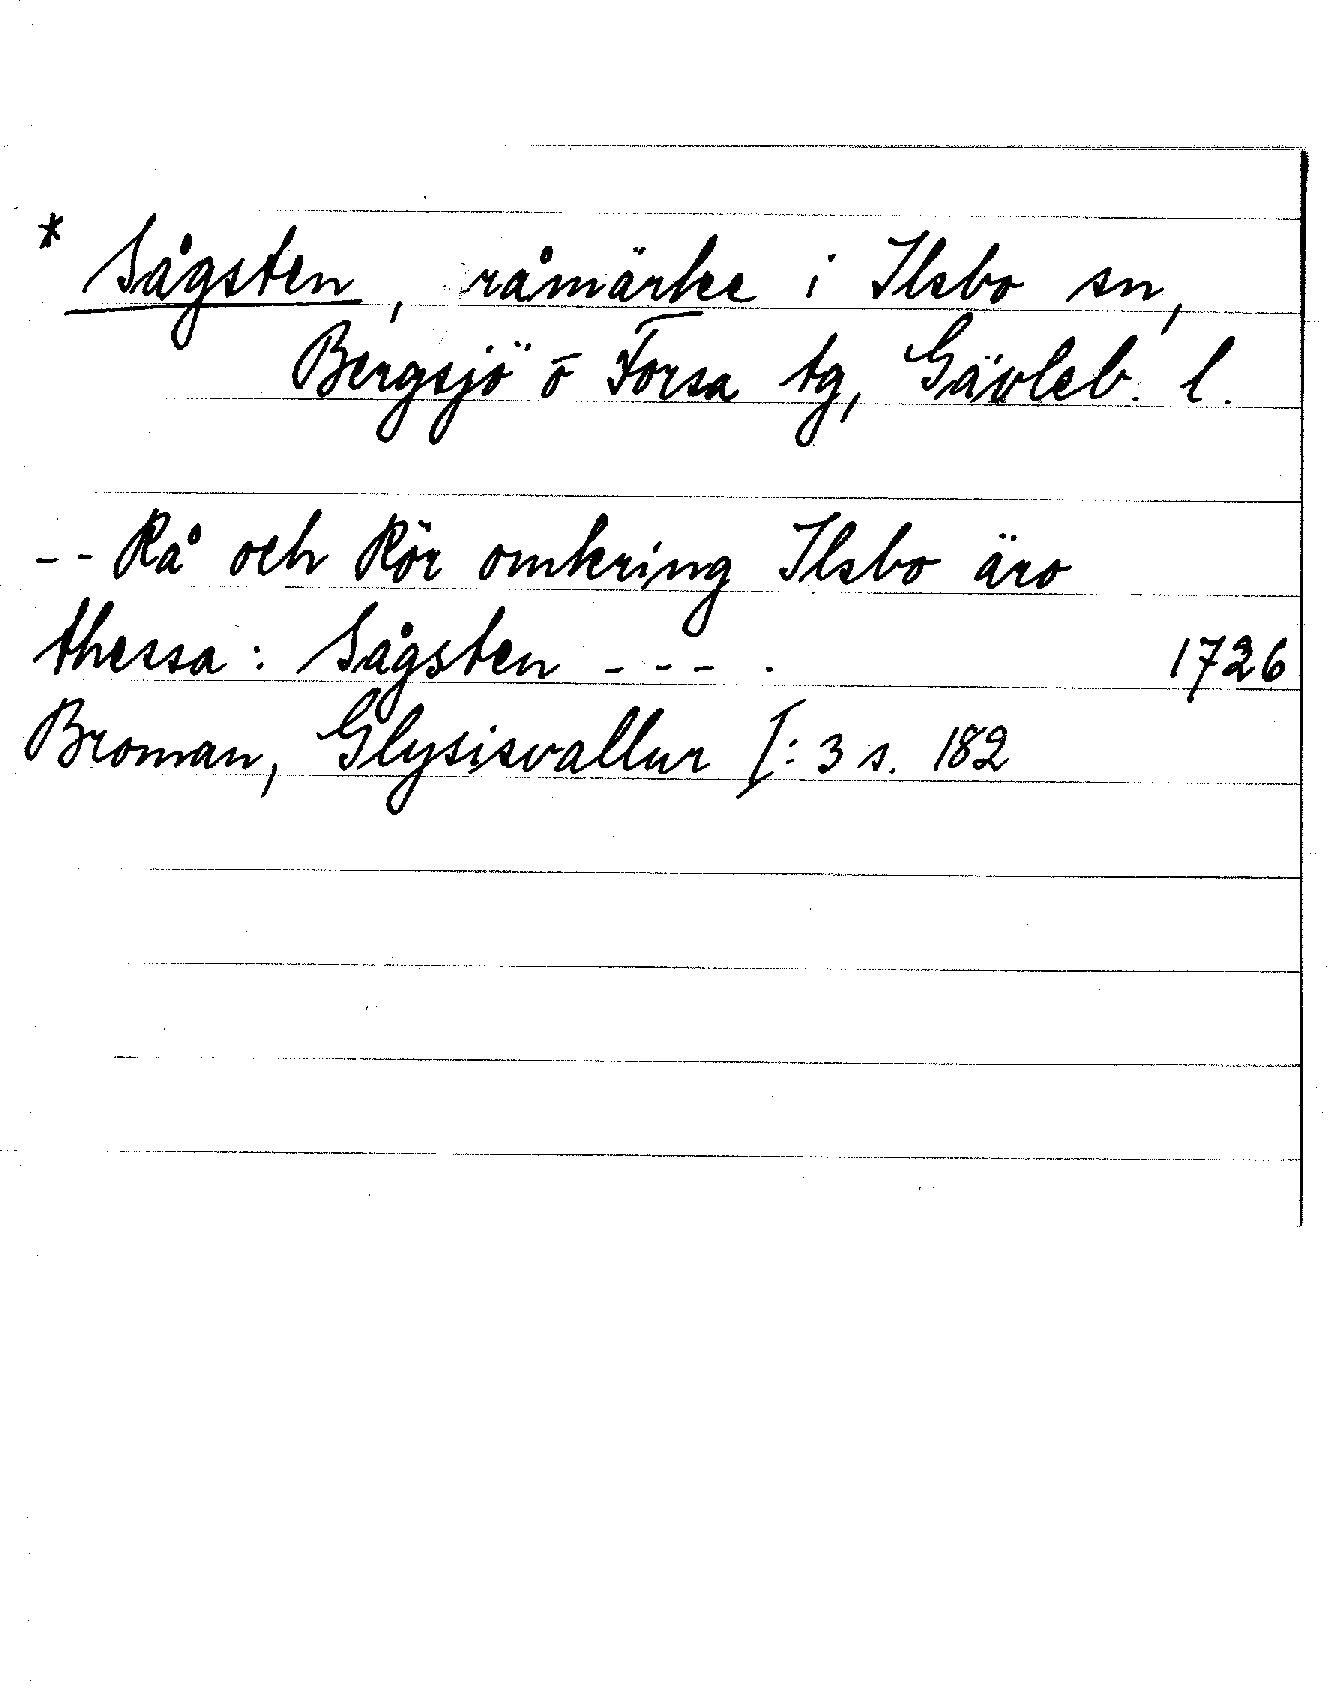 * Sågsten, råmärke i Ilsbo sn,
Bergsjö o Forsa tg, Gävleb. l.
-- Rå och Rör omkring Ilsbo äro
thessa: Sågsten --- . 1726
Broman, Glysisvallur I: 3 s. 182